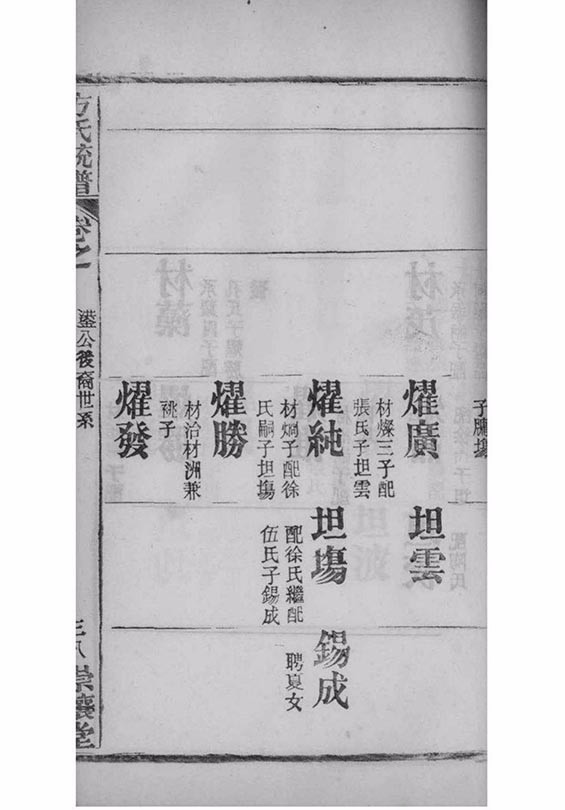 燿廣
坦雲
材燦三子配
張氏子坦雲
燿純
坦塲
錫成
材烱子配徐
氏嗣子坦塲
配徐氏繼配
伍氏子錫成
聘夏女
燿勝
材治材洲兼
祧子
燿發
方氏統譜
卷之
鎣公後裔世系
三八
崇讓堂